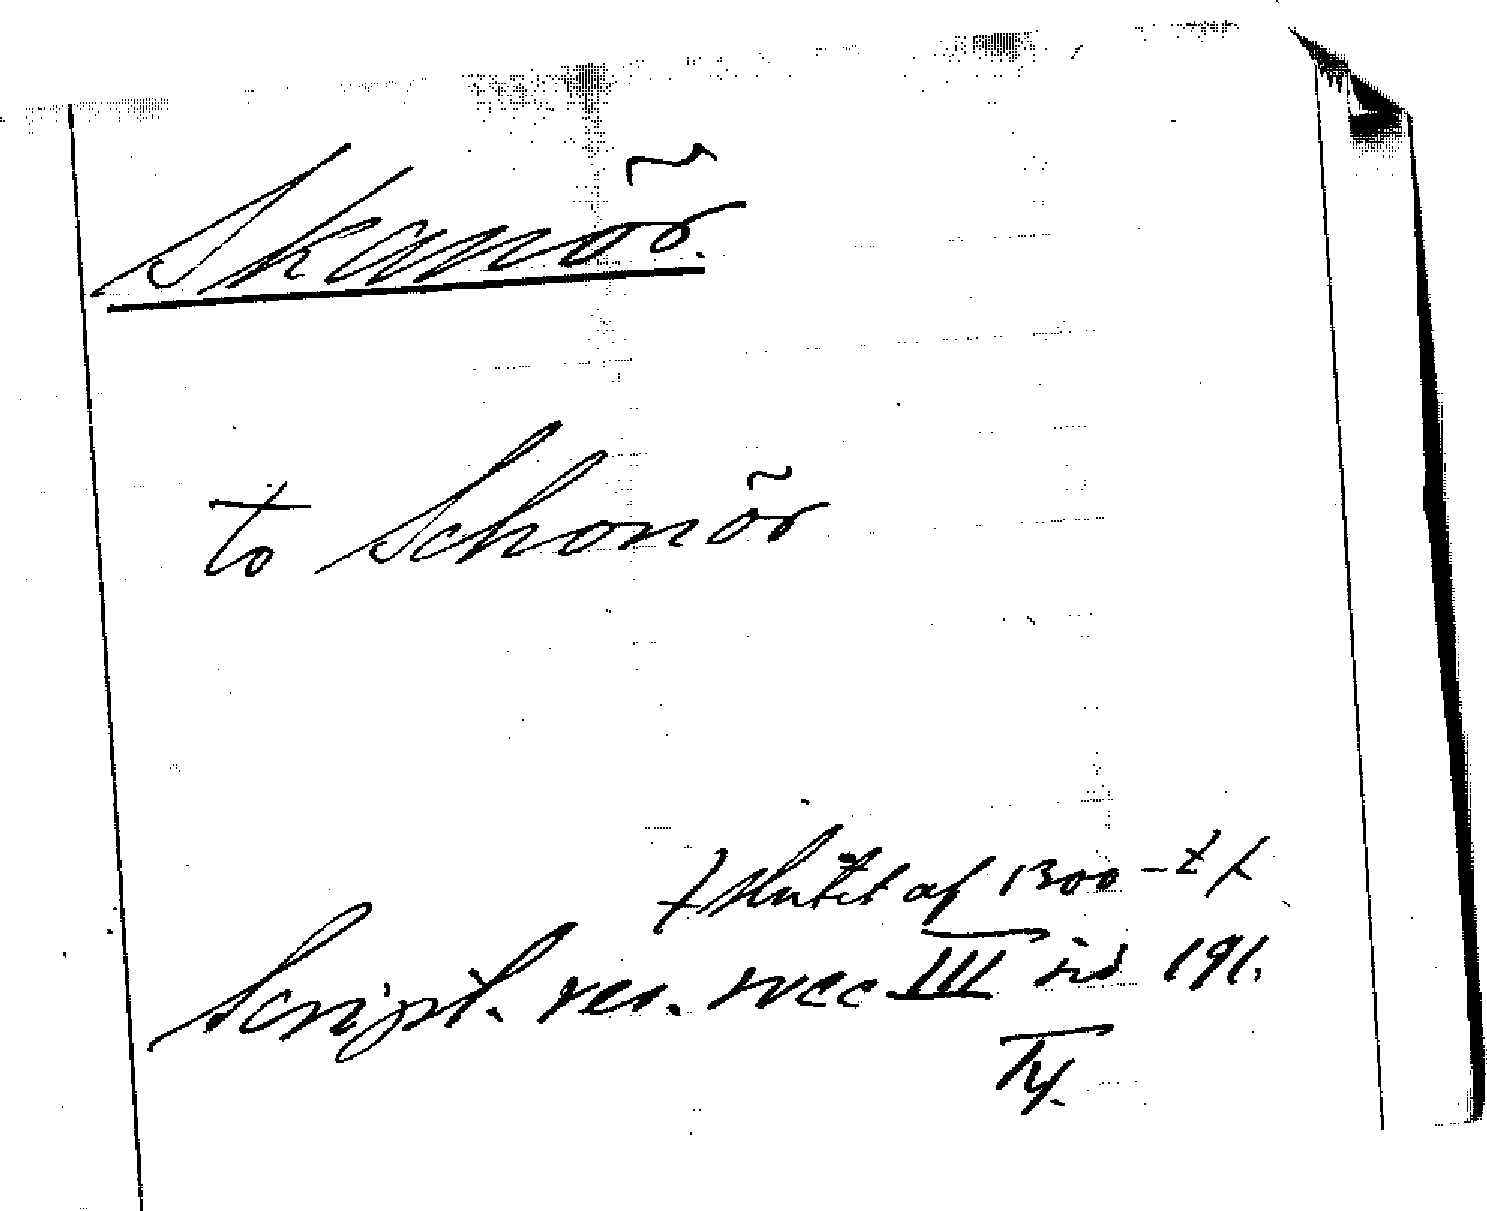 Skanör.
to Schonör
+ slutet af 1300-t +
Script. rer. svec III sid 191.
Ty.